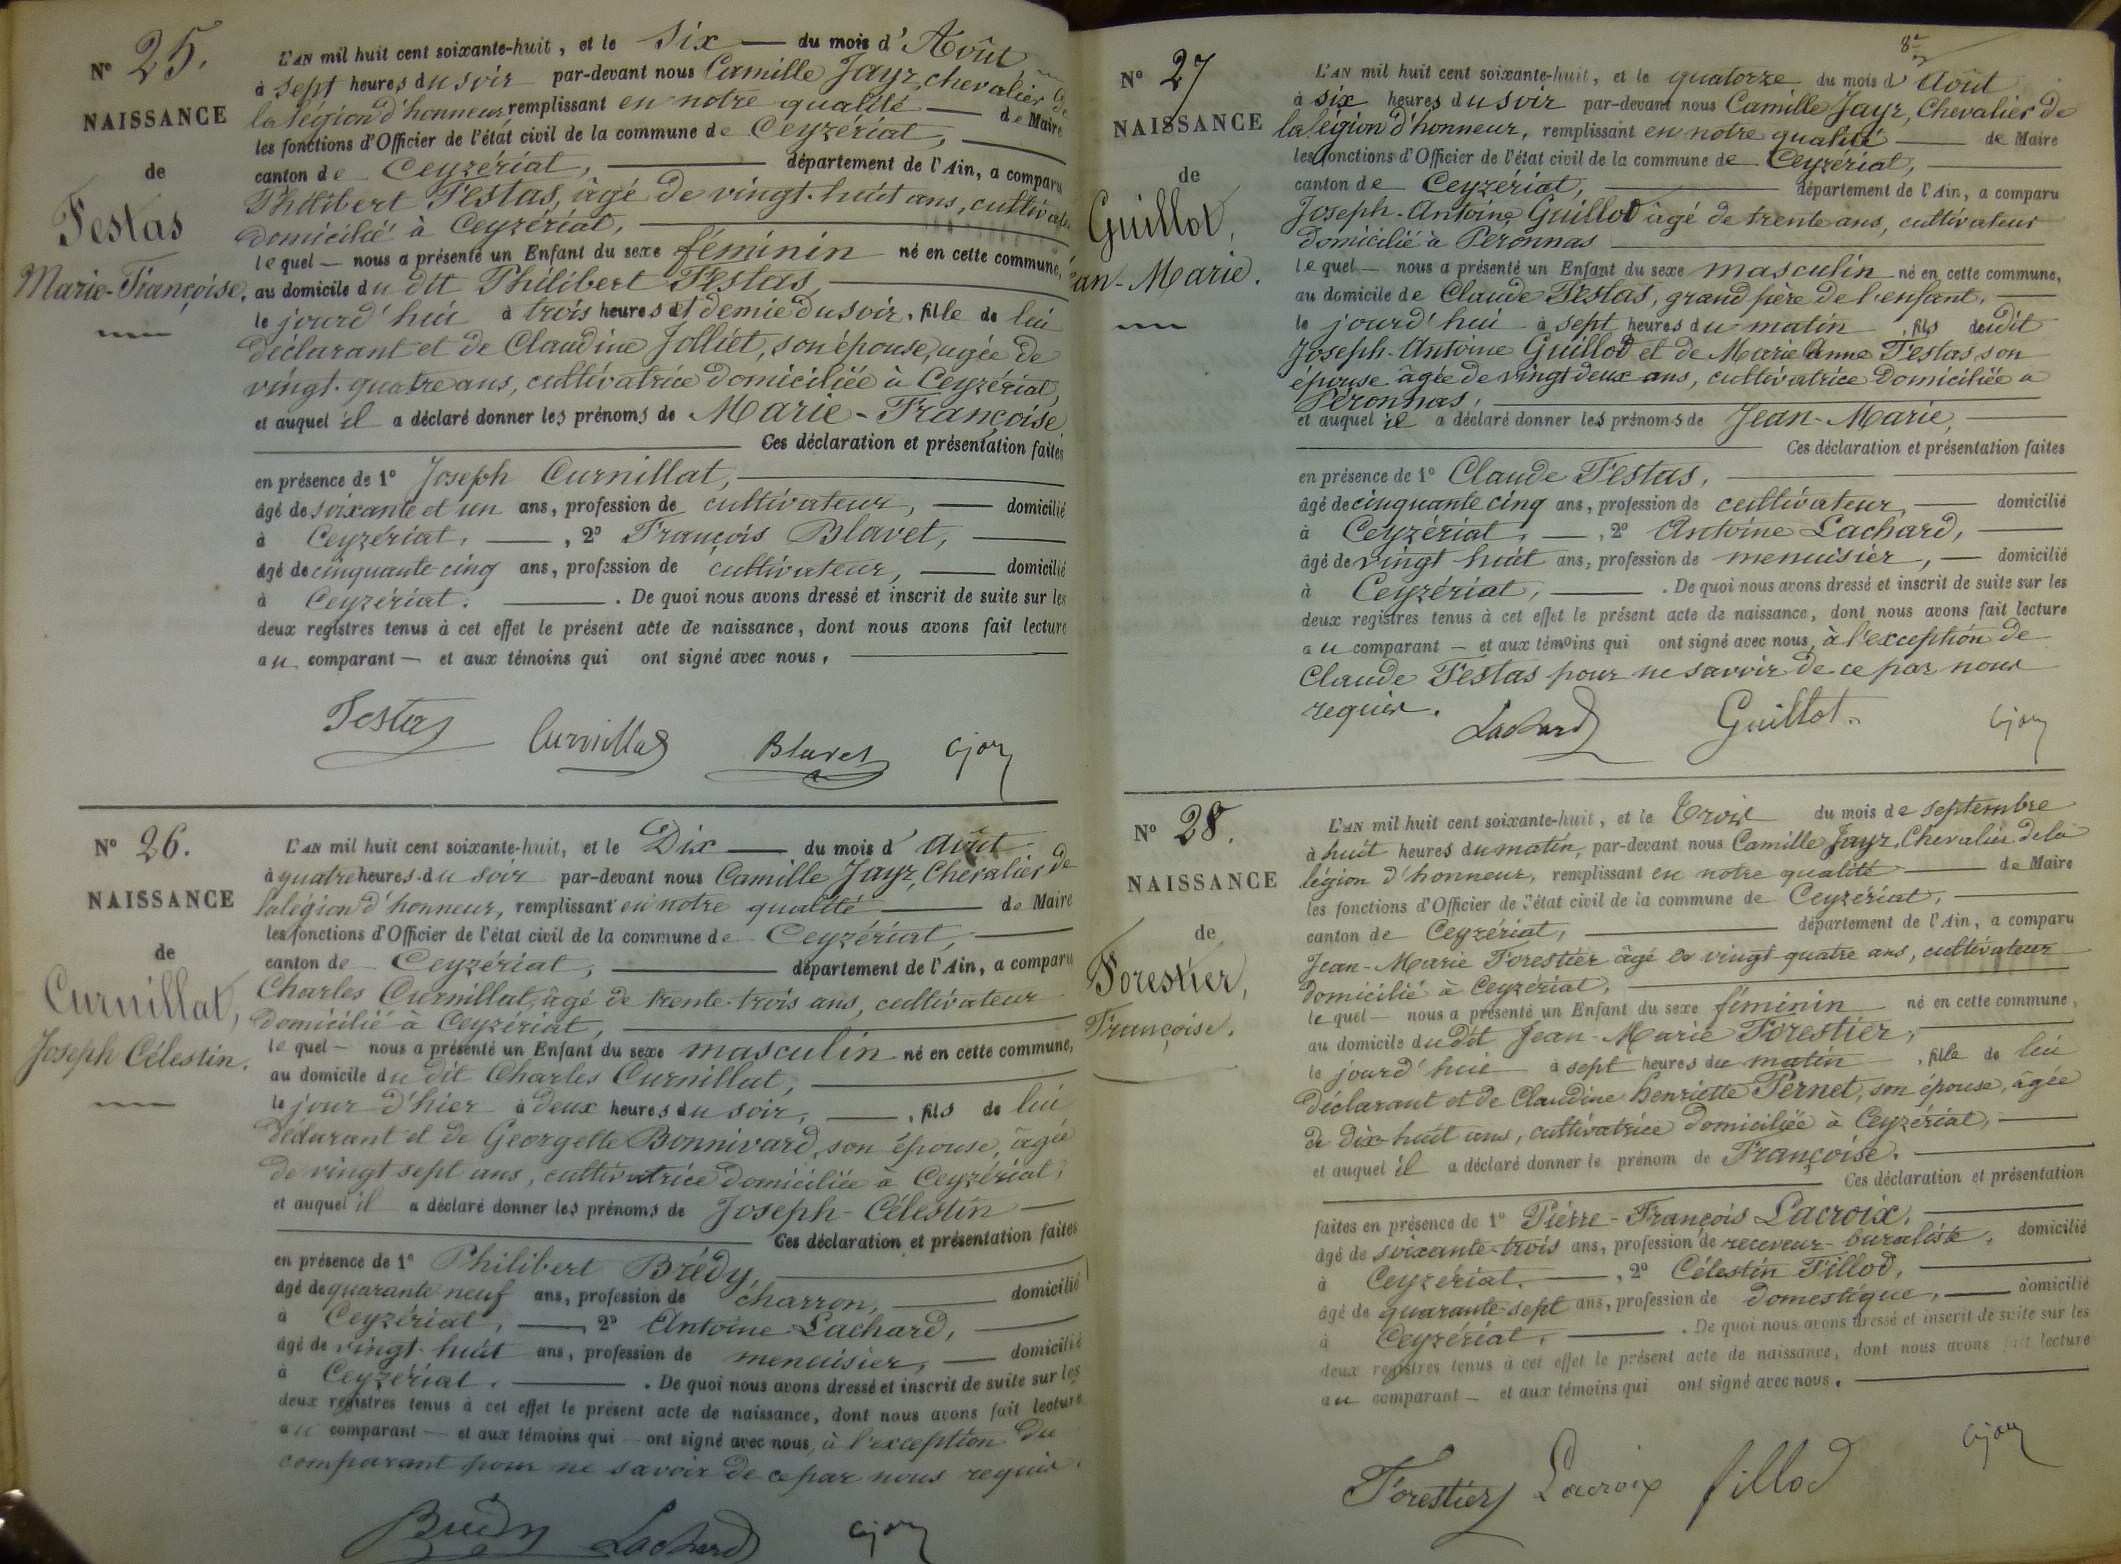 N° 25.
NAISSANCE
de
Festas
Marie-Françoise.
L'AN mil huit cent soixante-huit, et le Six — du mois d' Août
à sept heures du soir par-devant nous Camille Jayr, chevalier de
la légion d'honneur, remplissant en notre qualité — de Maire
les fonctions d'Officier de l'état civil de la commune de Ceyzériat,
canton de Ceyzériat, — département de l'Ain, a comparu
Philibert Festas, âgé de vingt-huit ans, cultivateur
domicilié à Ceyzériat,
lequel — nous a présenté un Enfant du sexe féminin né en cette commune,
au domicile du dit Philibert Festas,
le jourd'hui à trois heures et demie du soir, fille de lui
déclarant et de Claudine Jolliet, son épouse, agée de
vingt-quatre ans, cultivatrice domiciliée à Ceyzériat,
et auquel il a déclaré donner les prénoms de Marie-Françoise
Ces déclaration et présentation faites
en présence de 1° Joseph Curnillat,
âgé de soixante et un ans, profession de cultivateur, — domicilié
à Ceyzériat, —, 2° François Blavet,
âgé de cinquante cinq ans, profession de cultivateur, — domicilié
à Ceyzériat. — . De quoi nous avons dressé et inscrit de suite sur les
deux registres tenus à cet effet le présent acte de naissance, dont nous avons fait lecture
au comparant — et aux témoins qui ont signé avec nous,
Festas Curnillat Blavet Cjayr
N° 26.
NAISSANCE
de
Curnillat,
Joseph Célestin.
L'AN mil huit cent soixante-huit, et le Dix — du mois d' Août
à quatre heures du soir par-devant nous Camille Jayr, Chevalier de
la légion d'honneur, remplissant en notre qualité — de Maire
les fonctions d'Officier de l'état civil de la commune de Ceyzériat,
canton de Ceyzériat, — département de l'Ain, a comparu
Charles Curnillat, âgé de trente-trois ans, cultivateur
domicilié à Ceyzériat,
lequel — nous a présenté un Enfant du sexe masculin né en cette commune,
au domicile du dit Charles Curnillat,
le jour d'hier à deux heures du soir, — , fils de lui
déclarant et de Georgette Bonnivard, son épouse, âgée
de vingt sept ans, cultivatrice domiciliée à Ceyzériat,
et auquel il a déclaré donner les prénoms de Joseph-Célestin
Ces déclaration et présentation faites
en présence de 1° Philibert Brédy,
âgé de quarante neuf ans, profession de charron, — domicilié
à Ceyzériat, —, 2° Antoine Lachard,
âgé de vingt-huit ans, profession de menuisier, — domicilié
à Ceyzériat. — . De quoi nous avons dressé et inscrit de suite sur les
deux registres tenus à cet effet le présent acte de naissance, dont nous avons fait lecture
au comparant — et aux témoins qui — ont signé avec nous, à l'exception du
comparant pour ne savoir de ce par nous requis.
Brédy Lachard Cjayr
N° 27
NAISSANCE
de
Guillot,
ean-Marie.
L'AN mil huit cent soixante-huit, et le quatorze du mois d' Août
à six heures du soir par-devant nous Camille Jayr, Chevalier de
la légion d'honneur, remplissant en notre qualité — de Maire
les fonctions d'Officier de l'état civil de la commune de Ceyzériat,
canton de Ceyzériat, — département de l'Ain, a comparu
Joseph-Antoine Guillot âgé de trente ans, cultivateur
domicilié à Péronnas
lequel — nous a présenté un Enfant du sexe masculin né en cette commune,
au domicile de Claude Festas, grand père de l'enfant,
le jourd'hui à sept heures du matin, fils dudit
Joseph-Antoine Guillot et de Marie Anne Festas, son
épouse âgée de vingt deux ans, cultivatrice domiciliée à
Péronnas,
et auquel il a déclaré donner les prénoms de Jean-Marie,
Ces déclaration et présentation faites
en présence de 1° Claude Festas,
âgé de cinquante cinq ans, profession de cultivateur, — domicilié
à Ceyzériat, —, 2° Antoine Lachard,
âgé de vingt huit ans, profession de menuisier, — domicilié
à Ceyzériat, — . De quoi nous avons dressé et inscrit de suite sur les
deux registres tenus à cet effet le présent acte de naissance, dont nous avons fait lecture
au comparant — et aux témoins qui ont signé avec nous, à l'exception de
Claude Festas pour ne savoir de ce par nous
requis.
Lachard Guillot Cjayr
N° 28.
NAISSANCE
de
Forestier,
Françoise.
L'AN mil huit cent soixante-huit, et le Trois du mois de septembre
à huit heures du matin, par-devant nous Camille Jayr, Chevalier de la
légion d'honneur, remplissant en notre qualité — de Maire
les fonctions d'Officier de l'état civil de la commune de Ceyzériat,
canton de Ceyzériat, — département de l'Ain, a comparu
Jean-Marie Forestier âgé de vingt-quatre ans, cultivateur
domicilié à Ceyzériat,
lequel — nous a présenté un Enfant du sexe féminin né en cette commune,
au domicile du dit Jean-Marie Forestier,
le jourd'hui à sept heures du matin, fille de lui
déclarant et de Claudine henriette Pernet, son épouse, âgée
de dix-huit ans, cultivatrice domiciliée à Ceyzériat,
et auquel il a déclaré donner le prénom de Françoise.
Ces déclaration et présentation
faites en présence de 1° Pierre-François Lacroix,
âgé de soixante-trois ans, profession de receveur-buraliste, domicilié
à Ceyzériat. —, 2° Célestin Fillod,
âgé de quarante-sept ans, profession de domestique, — domicilié
à Ceyzériat. — . De quoi nous avons dressé et inscrit de suite sur les
deux registres tenus à cet effet le présent acte de naissance, dont nous avons fait lecture
au comparant — et aux témoins qui ont signé avec nous.
Forestier Lacroix fillod Cjayr